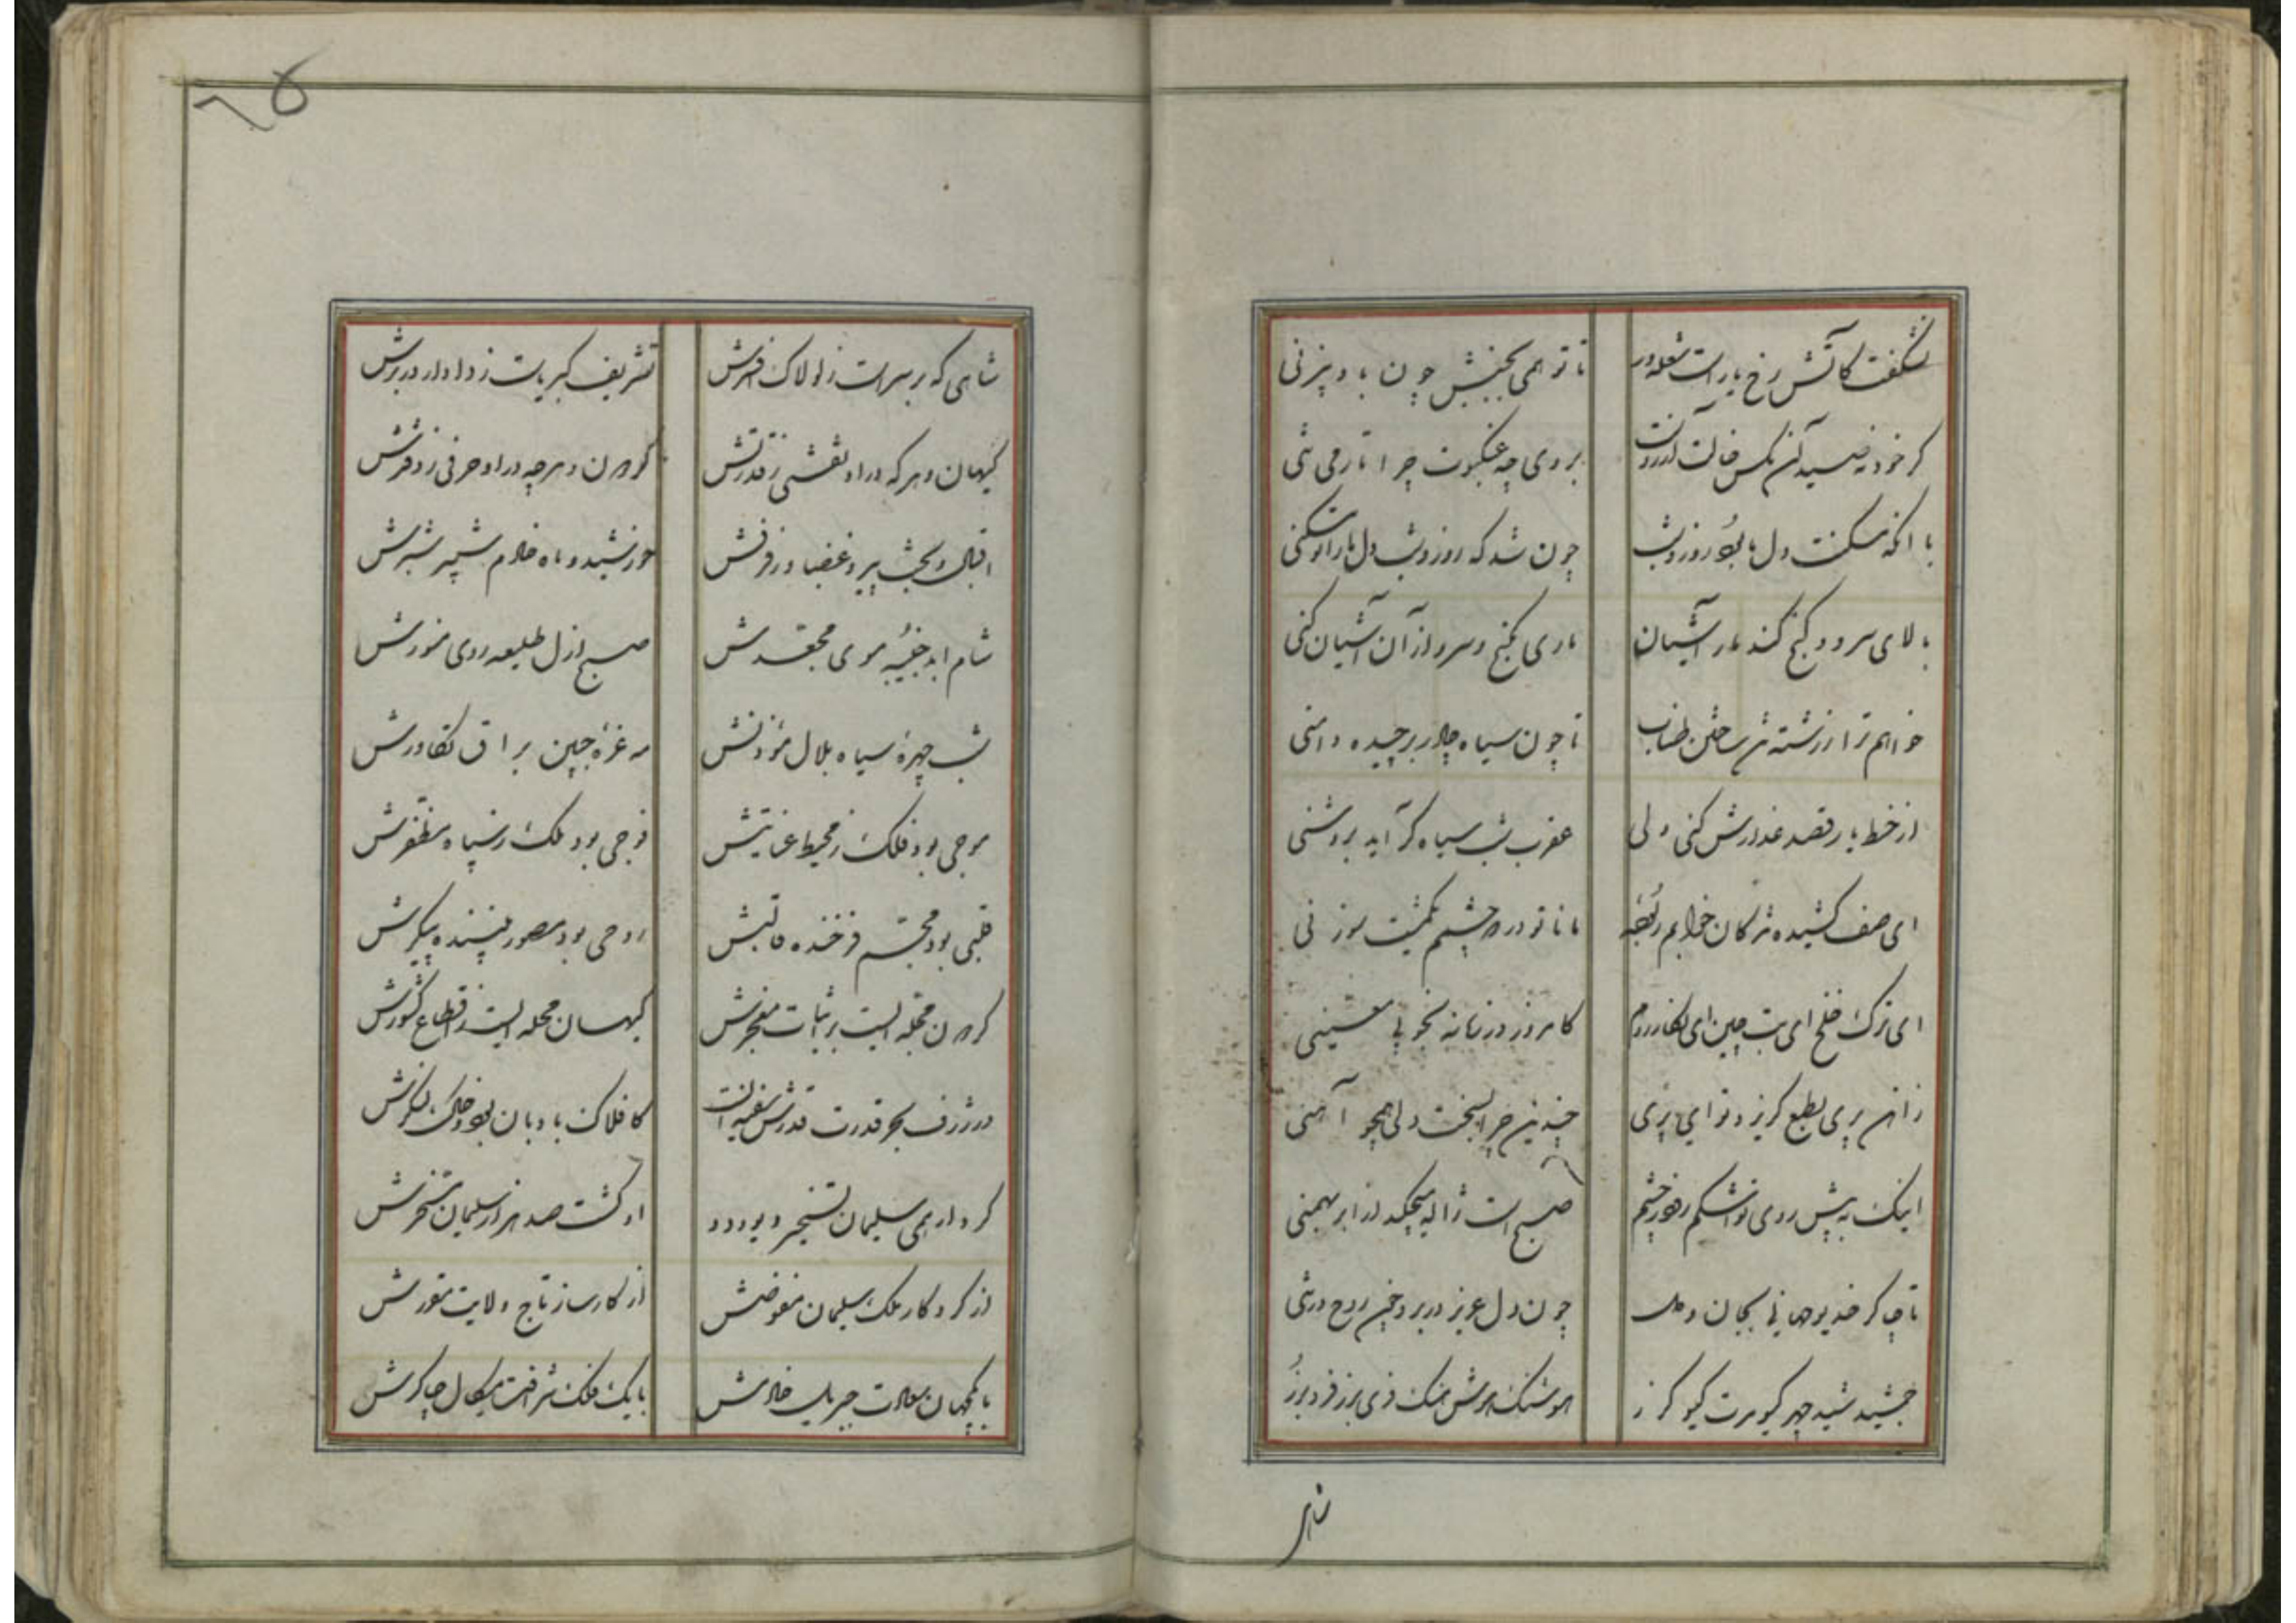 نشگفت کاتش رخ یار است شعله‌ور تا تو همی بجنبش چون باد بیزنی
گر خود نه صید آن مگس خالت آرزوست بر وی چه عنکبوت چرا تار می تنی
با انکه مسکنت دل ما بود روز و شب چون شد که روز و شب دل ما را تو مسکنی
بالای سرو و گنج کند مار آشیان ماری بگنج و سرو از آن آشیان کنی
خواهم ترا ز رشته تن ساختن طناب تا چون سیاه چادر برچیده دامنی
از خط یار قصد عذارش کنی ولی عقرب شب سیاه گر آید بروشنی
ای صف کشیده مژگان خوابم رود مانا تو در دو چشم نمشیت سوزنی
ای ترک خلخ ای بت چین ای نگار روم کامروز در زمانه بخوبی معینی
ز اهن پری بطبع گریزد تو ای پری چندین چرا بسخت دلی همچو آهنی
اینک به پیش روی تو اشکم رود ز چشم صبح است ژاله میچکد از ابر بهمنی
تا چاکر خدیو جهانی بجان و دل چون دل عزیز در بر و چون روح در تنی
جمشید شید چهر کیومرت کیو گرز هوشنک هوش هنک فری برز فر و برز
شاهی که بر سر است ز لولاک افسرش تشریف کبریاست ز دادار در برش
کیهان و هر که در او نقشی ز قدرتش گردون و هر چه در او حرفی ز دفترش
اقبال و بخت پیرو غضبا و رفرفش خورشید و ماه خادم شبیر و شبرش
شام ابد جنیبه موی مجعدش صبح ازل طلیعه روی منورش
شب چهره سیاه بلال مؤذنش مه غره جبین براق تکاورش
موجی بود فلک ز محیط عنایتش فوجی بود ملک ز سپاه مظفرش
قلبی بود مجسم فرخنده قالبش روحی بود مصور پسندیده پیکرش
گردون مجله ایست ز اثبات معجزش کیهان محله ایست ز اقطاع کشورش
در ژرف بحر قدرت قدرش سفینه ایست کافلاک بادبان بود و خاک لنگرش
کرد ار همی سلیمان تسخیر دیو و دد او گشت صد هزار سلیمان مسخرش
از کردگار ملک سلیمان مفوضش از کارساز تاج ولایت مقررش
با یکجهان سعادت جبریل خادمش با یک فلک شرافت میکال چاکرش